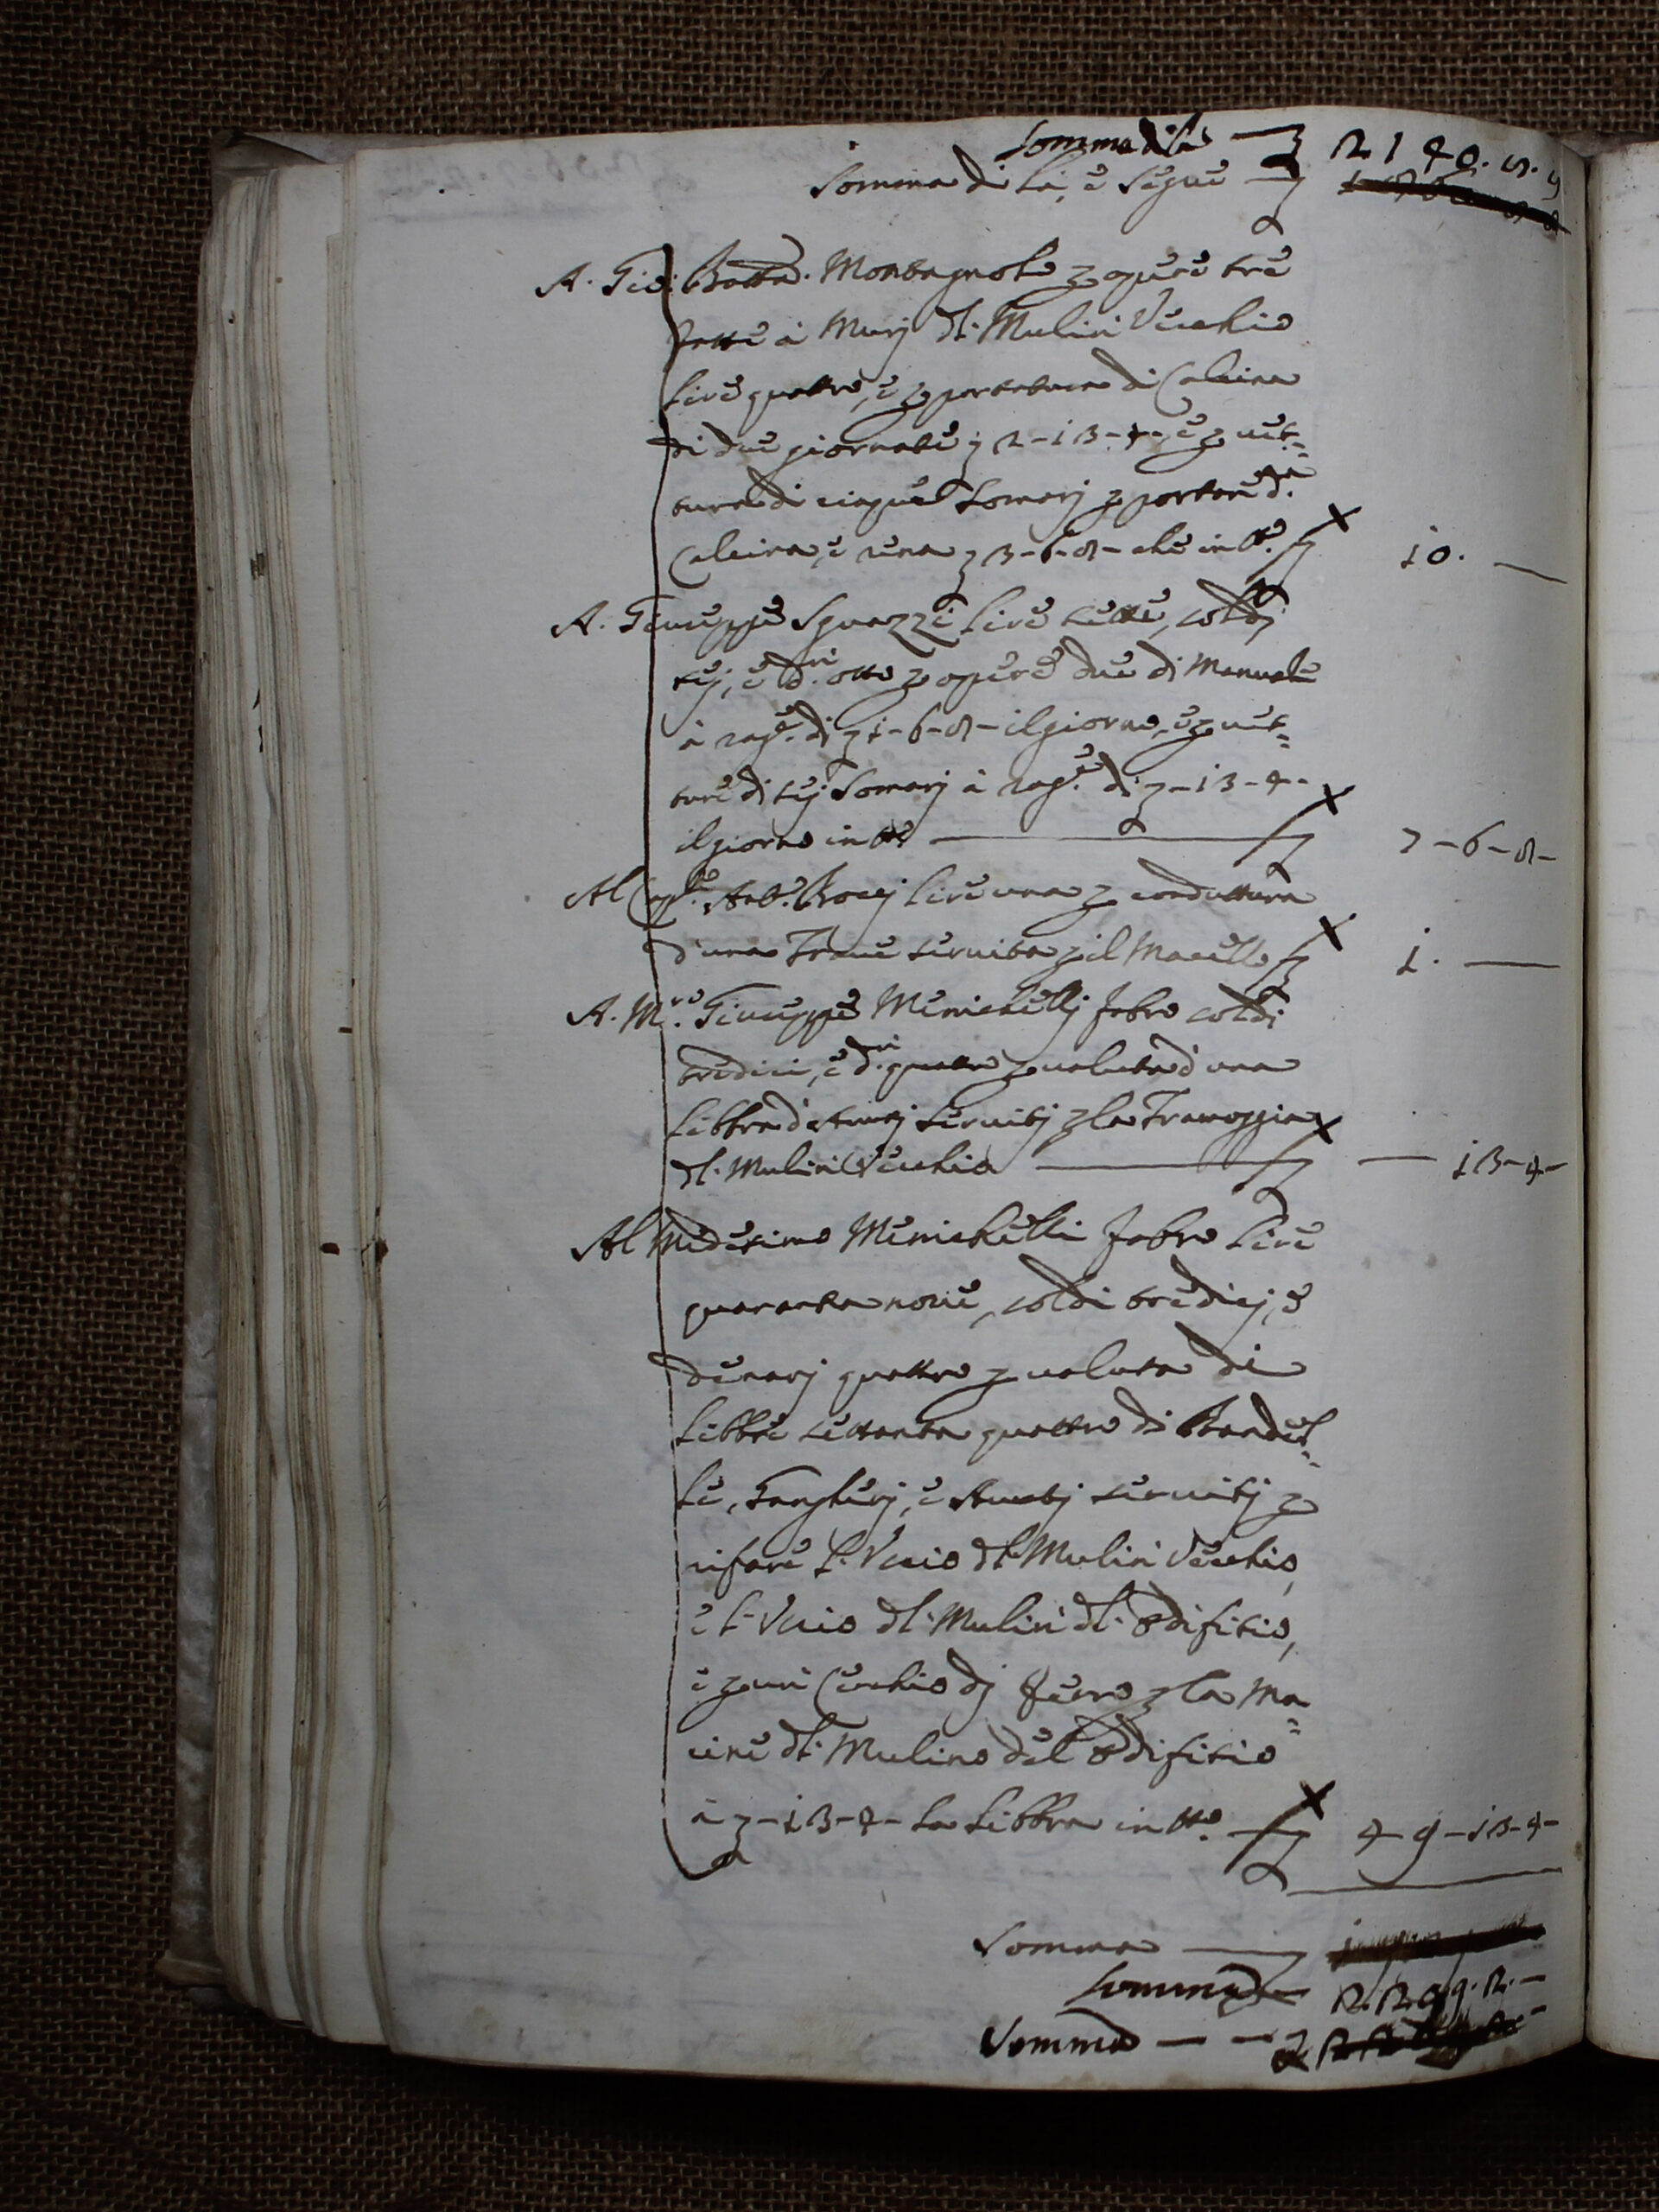 Somma di là — 2140. 5. 4
Somma di là, e segue —
A. Gio: Batta. Montagnoli p opere tre
fatte a Murj dl. Mulin Vecchio
lire quattro, e p portatura di Calcina
di due giornate z 2-13-4-, e p vet=
tura di cinque Somarj p portare d.ta
Calcina, e rena z 3-6-8- che in tto. 10. —
A. Giuseppe Sguazzi lire sette, soldj
sej, e d.ri otto p opere due di Manuale
a rag.e di z 1-6-8- il giorno, e p vet=
ture di sej Somarj a rag.e di z -13-4-
il giorno in tto — 7-6-8-
Al Cap.e Ant.o Roccj lire una p condottura
d'una Trave servita p il Macello 1. —
A. M.ro Giuseppe Menichellj fabro soldi
tredici, e d.ri quattro p valuta d'una
libbra d'stuccj servitj p la Tramoggia
dl. Mulin Vecchio — — 13-4-
Al Medesimo Menichelli fabro lire
quaranta nove, soldi tredicj, e
denarj quattro p valuta di
libbre settanta quattro di Bandel=
le, Gangherj, e stuccj servitj p
rifare l'Uscio dl. Mulin Vecchio,
e l'Uscio dl. Mulin dl. Edifitio,
e p un Cerchio dj ferro p la Ma=
cine dl. Mulino del Edifitio
a z -13-4- la libbra in tto. — 49-13-4-
Somma —
Somma — 2299. 2. —
Somma — —